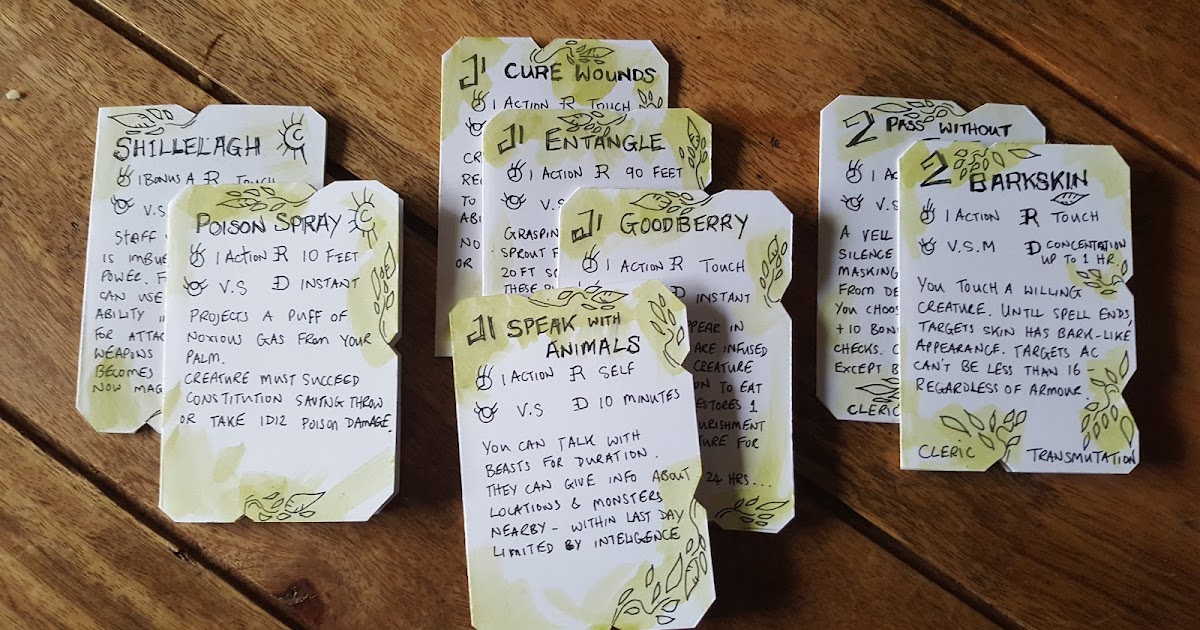 SHILLELAGH C
1 BONUS A R TOUCH
V.S.
STAFF
IS IMBUE
POWER. F
CAN USE
ABILITY I
FOR ATTAC
WEAPONS
BECOMES
NOW MAG
POISON SPRAY C
1 ACTION R 10 FEET
V.S D INSTANT
PROJECTS A PUFF OF
NOXIOUS GAS FROM YOUR
PALM.
CREATURE MUST SUCCEED
CONSTITUTION SAVING THROW
OR TAKE 1D12 POISON DAMAGE.
1 CURE WOUNDS
1 ACTION R TOUCH
CR
REG
TO
ABI
NO
OR
1 ENTANGLE
1 ACTION R 90 FEET
V.S
GRASPIN
SPROUT F
20FT S
THESE
1 GOODBERRY
1 ACTION R TOUCH
D INSTANT
PPEAR IN
ARE INFUSED
CREATURE
ON TO EAT
ESTORES 1
URISHMENT
TURE FOR
24 HRS...
1 SPEAK WITH
ANIMALS
1 ACTION R SELF
V.S D 10 MINUTES
YOU CAN TALK WITH
BEASTS FOR DURATION.
THEY CAN GIVE INFO ABOUT
LOCATIONS & MONSTERS
NEARBY - WITHIN LAST DAY
LIMITED BY INTELIGENCE
2 PASS WITHOUT
1 AC
V.S
A VEIL
SILENCE
MASKING
FROM DE
YOU CHOOS
+10 BON
CHECKS. C
EXCEPT B
CLERIC
2 BARKSKIN
1 ACTION R TOUCH
V.S.M D CONCENTRATION
UP TO 1 HR.
YOU TOUCH A WILLING
CREATURE. UNTIL SPELL ENDS,
TARGETS SKIN HAS BARK-LIKE
APPEARANCE. TARGETS AC
CAN'T BE LESS THAN 16 -
REGARDLESS OF ARMOUR.
CLERIC TRANSMUTATION